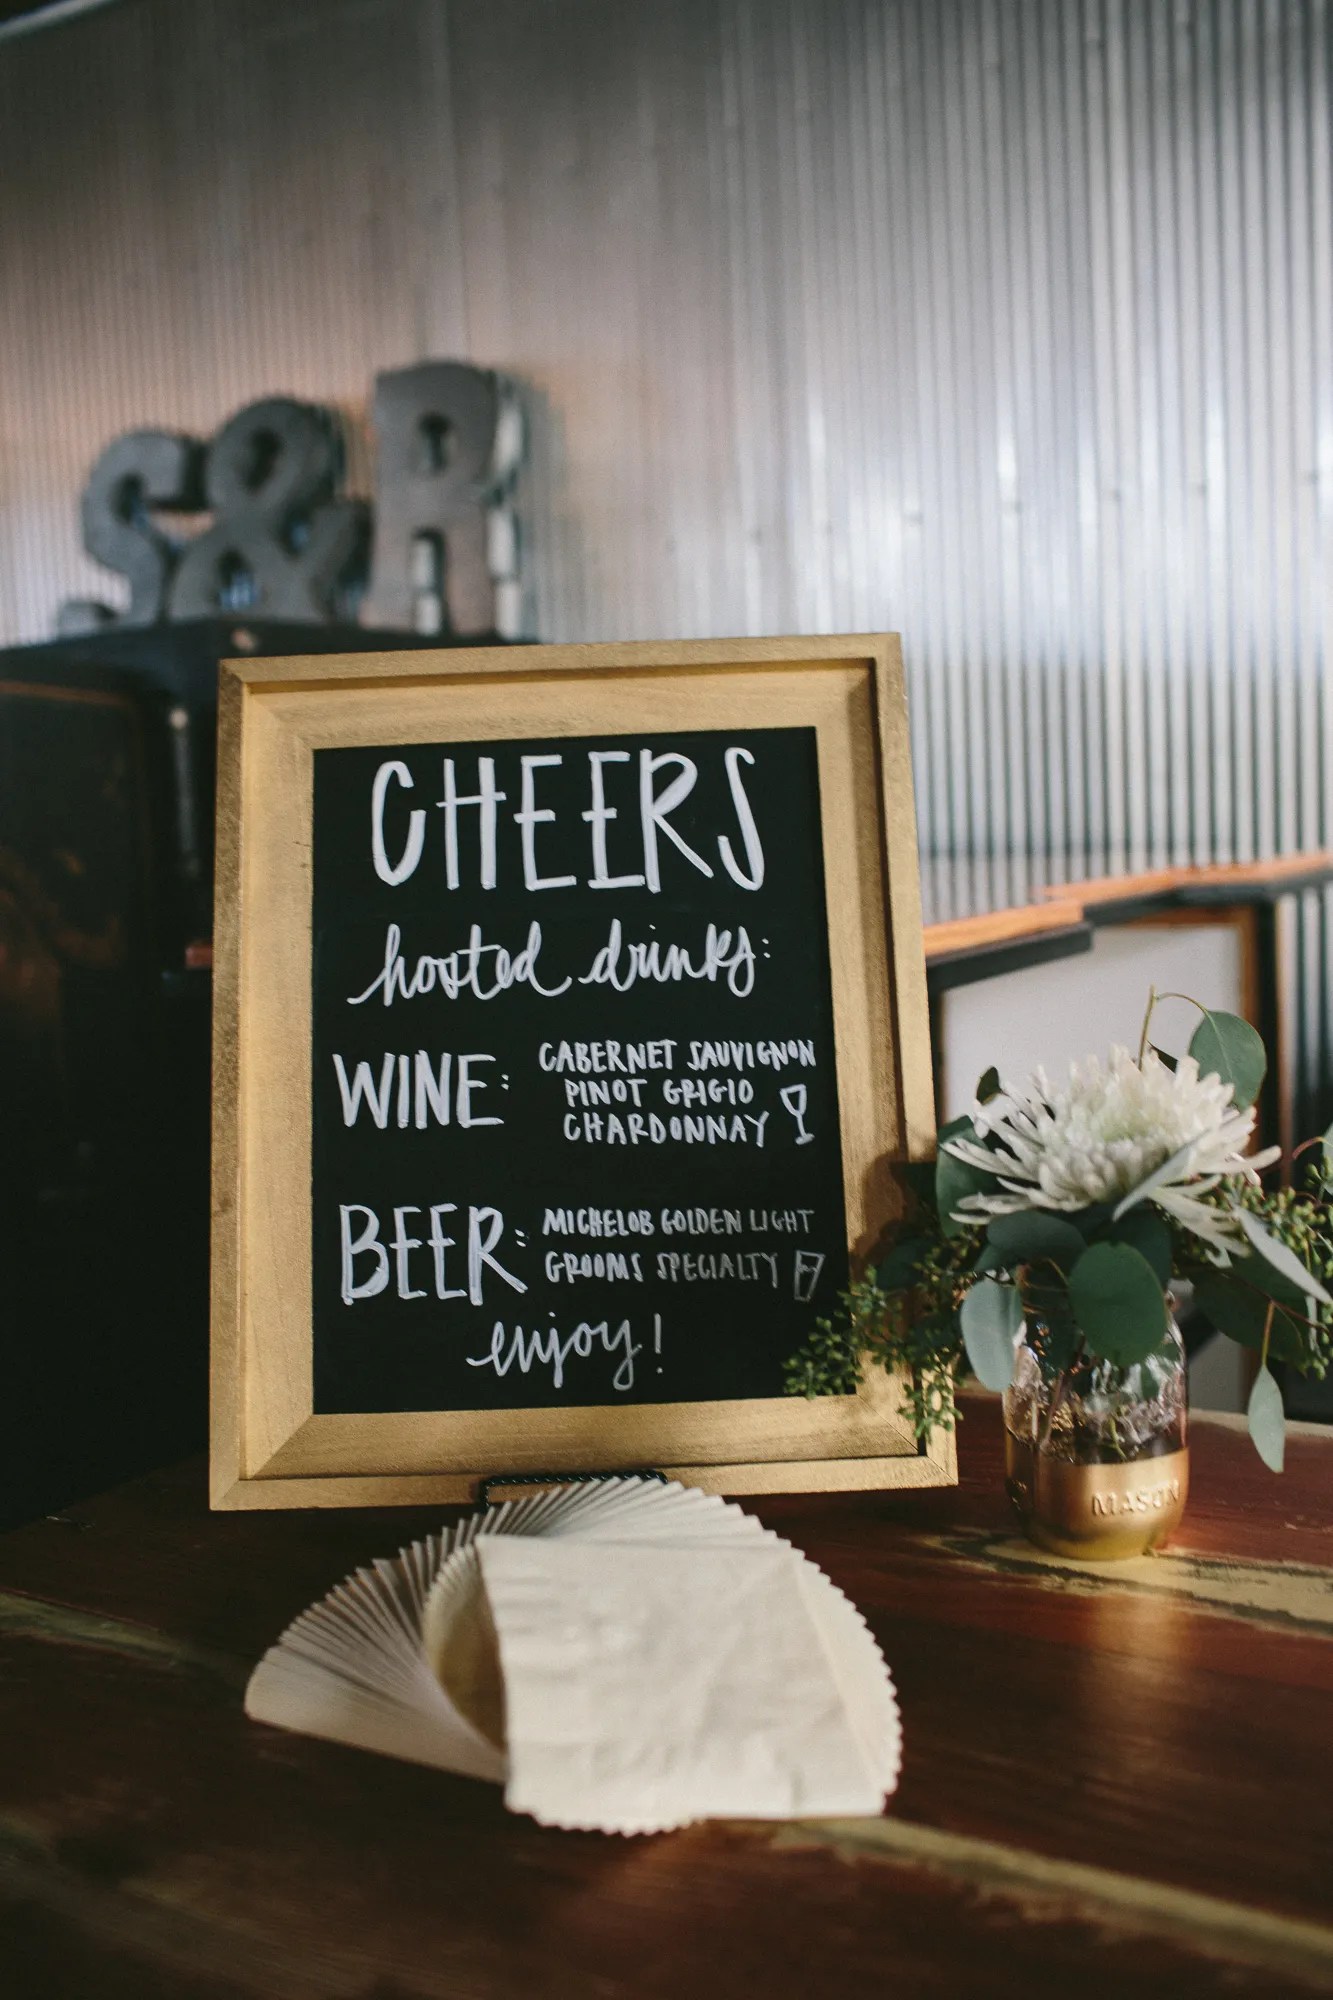 S&R
CHEERS
hosted drinks:
WINE: CABERNET SAUVIGNON
PINOT GRIGIO
CHARDONNAY
BEER: MICHELOB GOLDEN LIGHT
GROOMS SPECIALTY
enjoy!
MASON